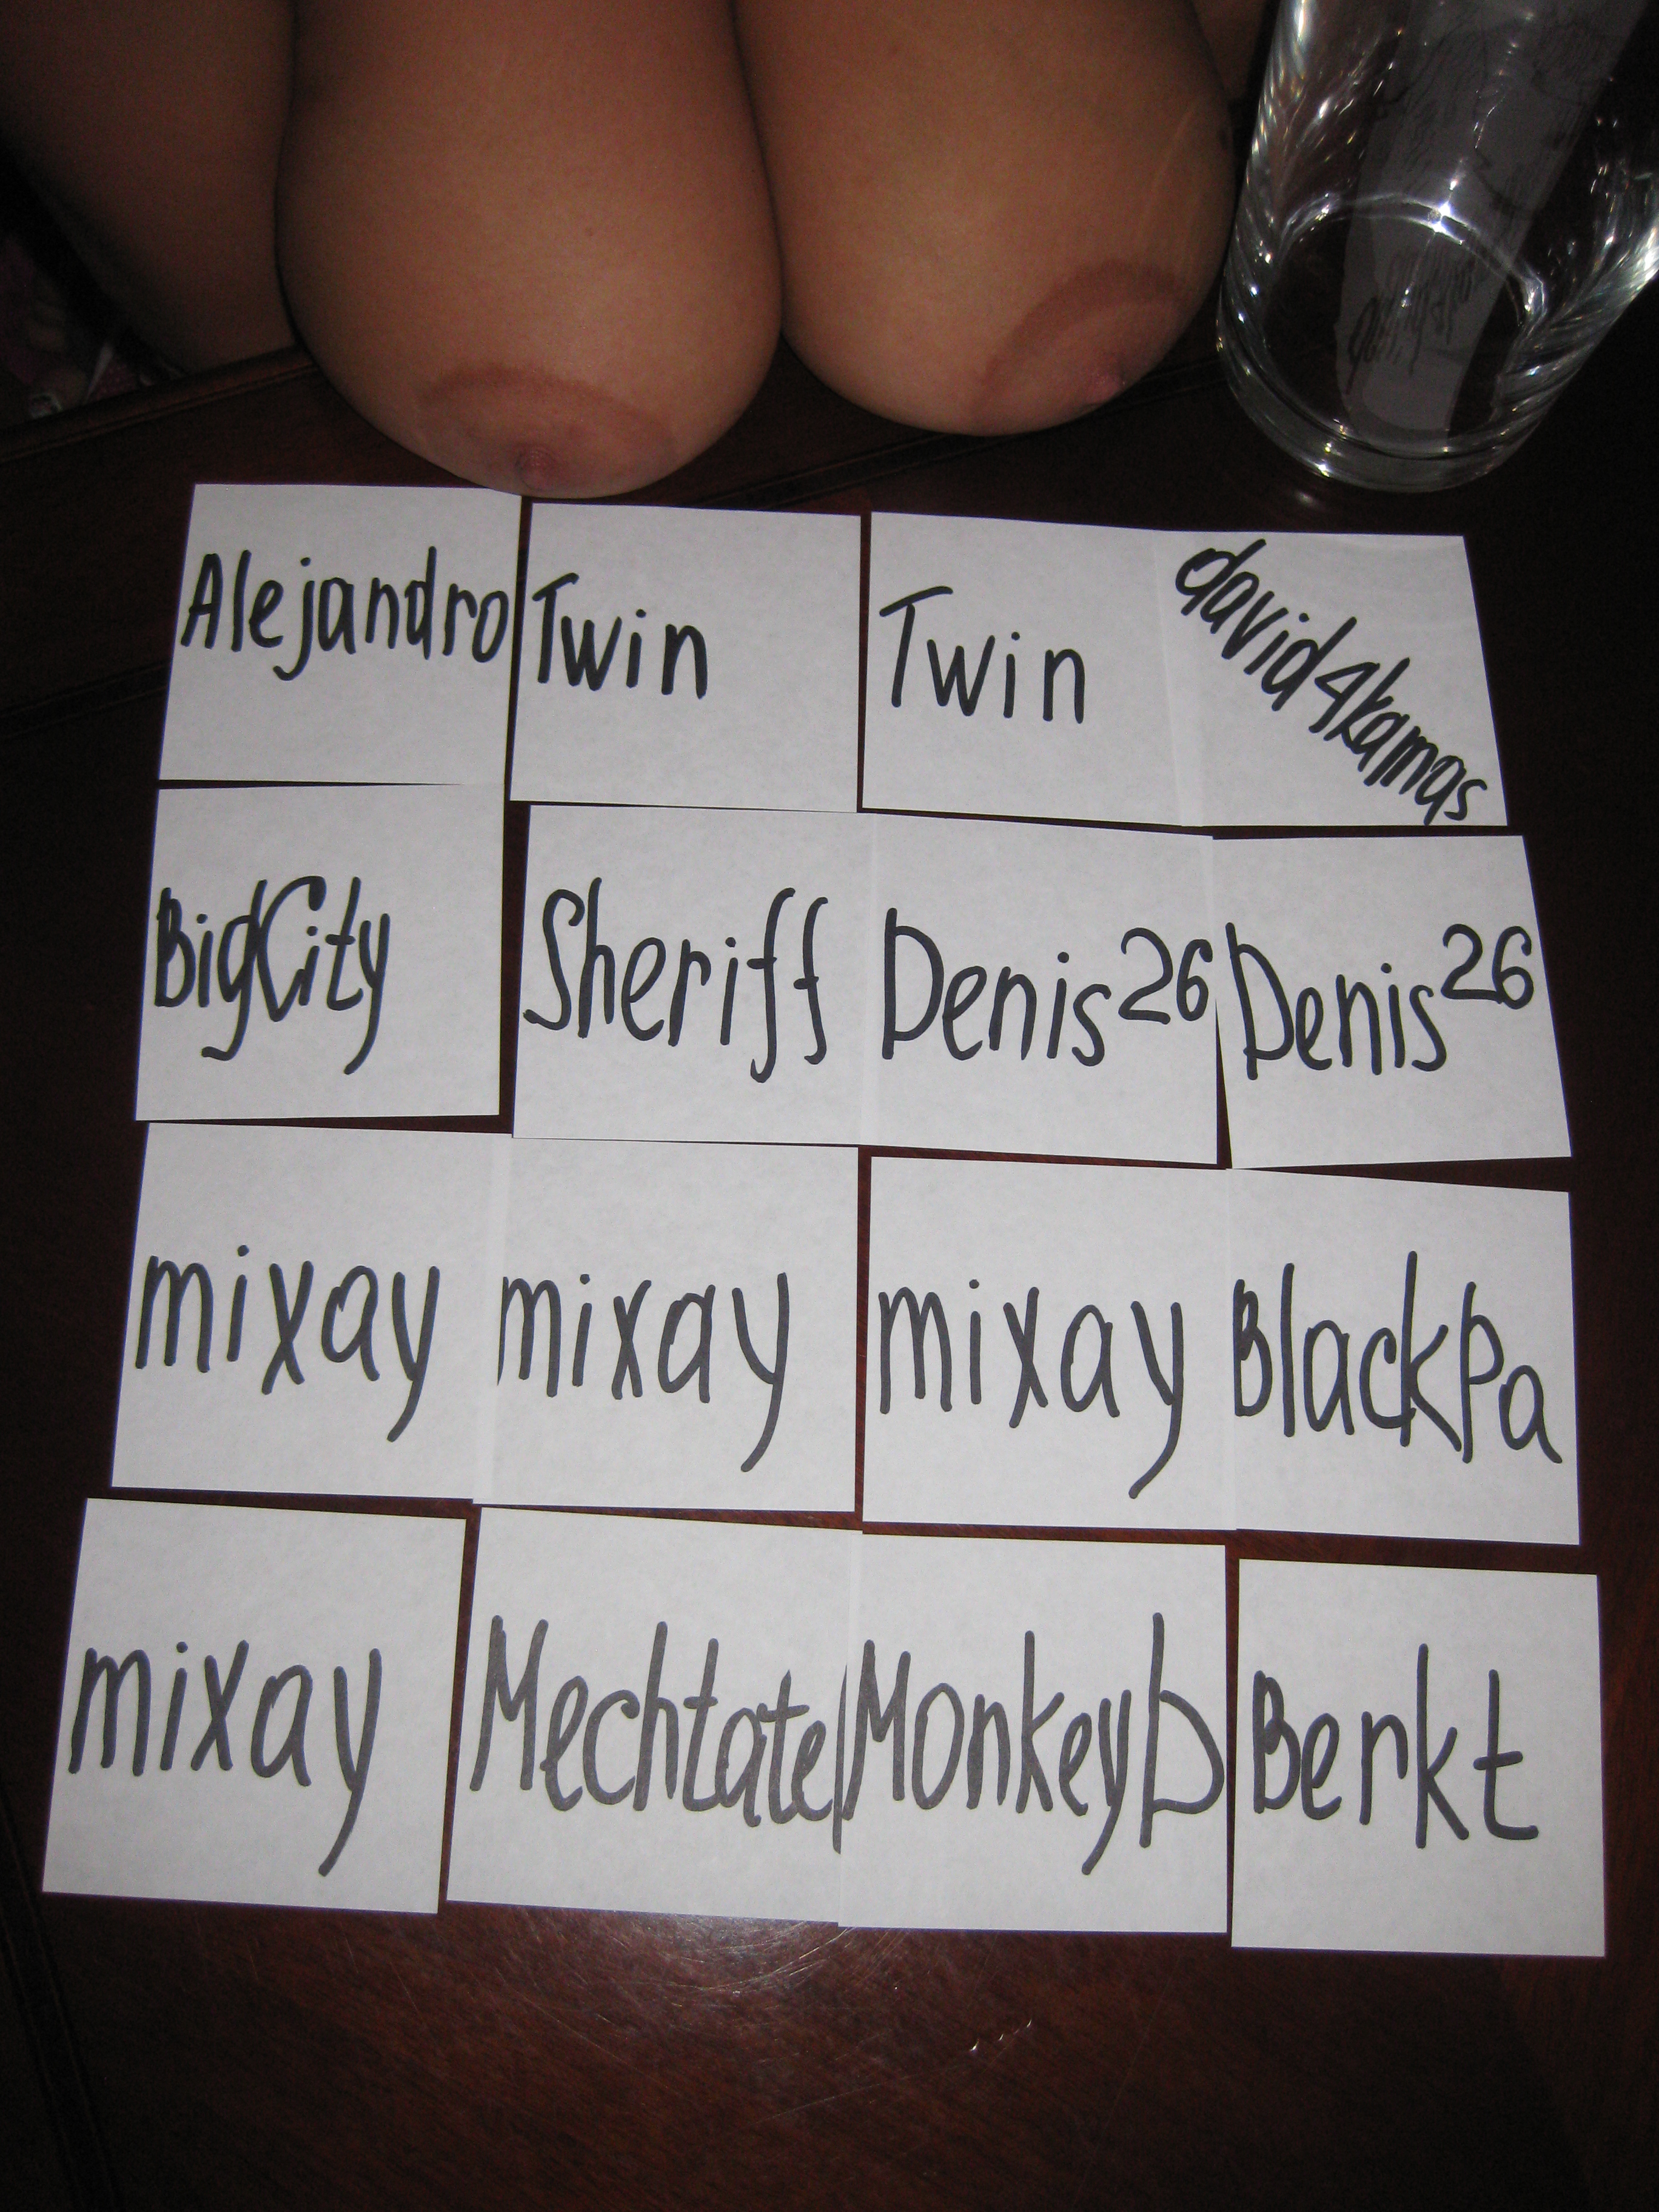 Alejandro Twin Twin david4kamas
BigCity Sheriff Denis26 Denis26
mixay mixay mixay BlackPa
mixay Mechtatel MonkeyD Berkt